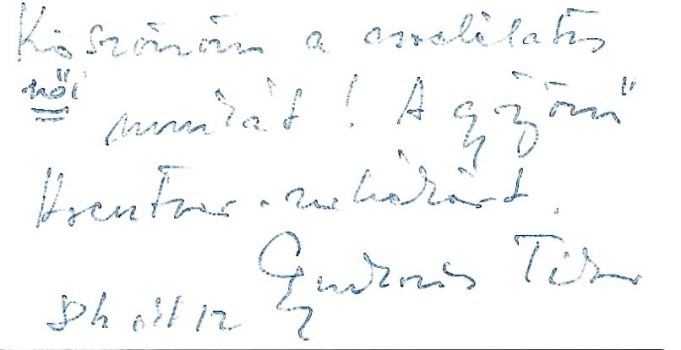 Köszönöm a csodálatos
női
munkát! A gyönyörű
ruhákért.
Gyurkovics Tibor
12